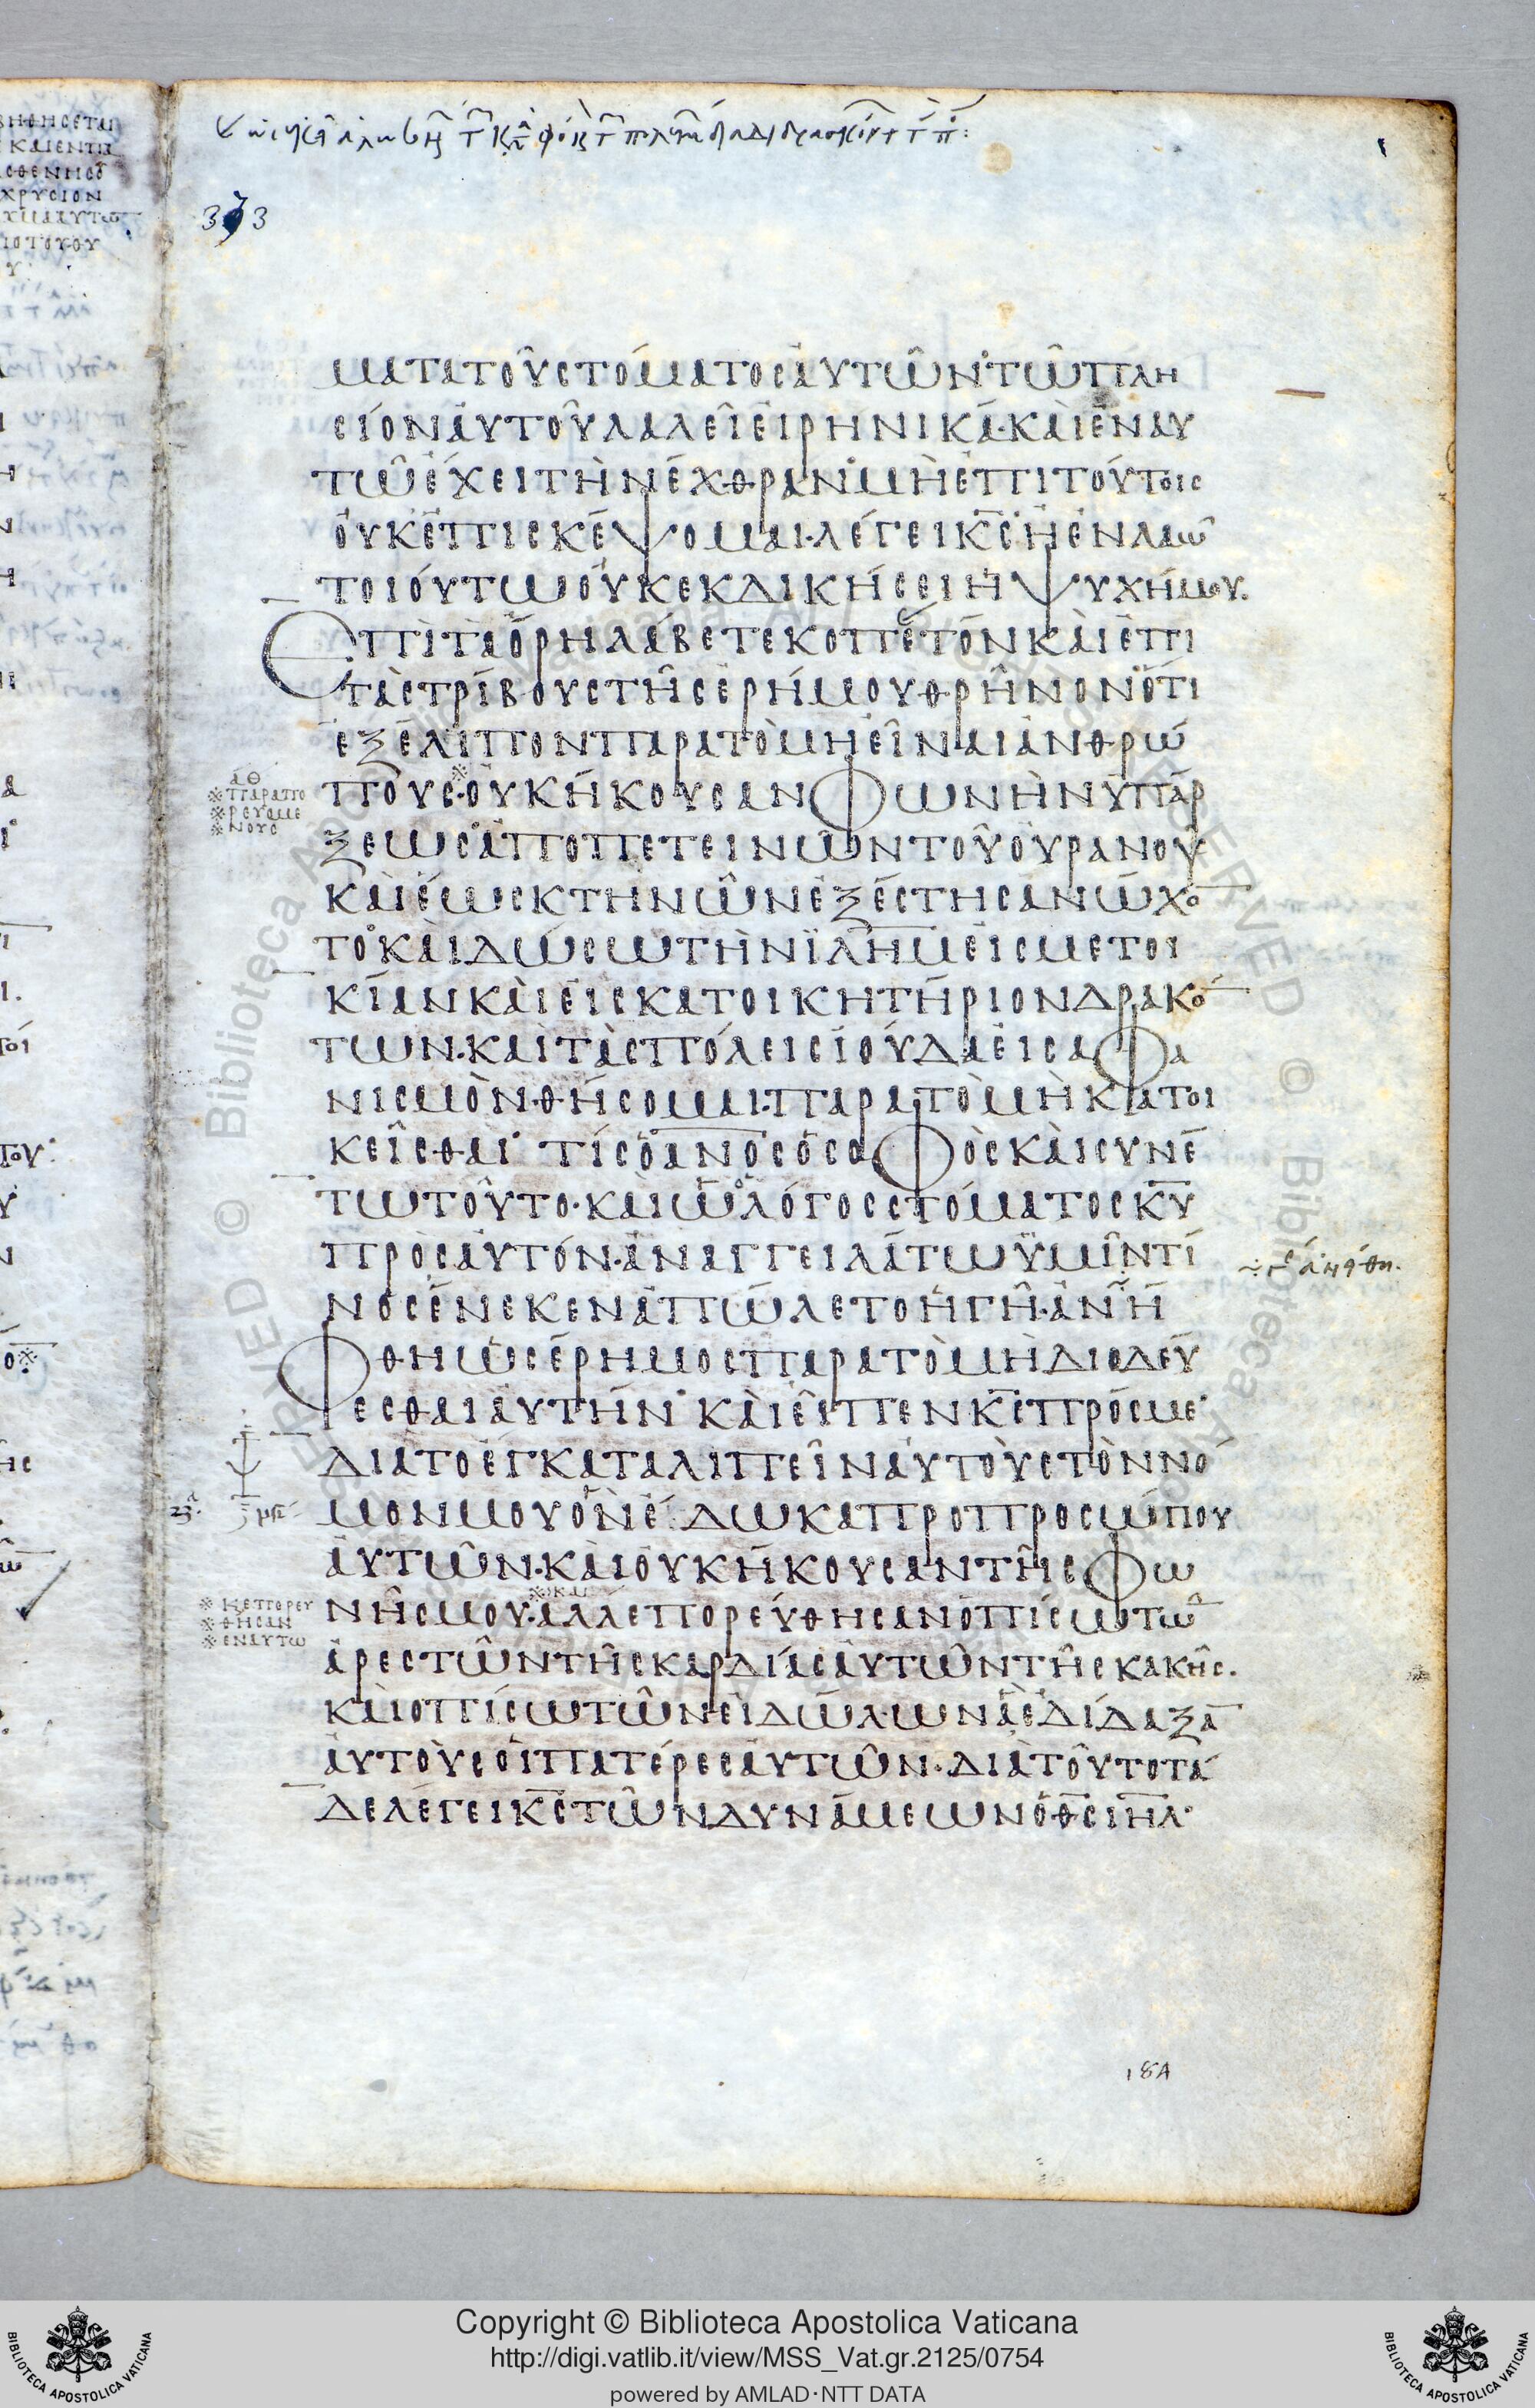 373
ματατοῦστόματοσἀυτῶν·τῶπλη
σίονἀυτοῦλαλεῖἐιρηνικά·κὰιἐναυ
τῶἔχειτὴνἔχθραν·μὴἐπιτούτοις
ὀυκἐπισκέψομαι·λέγεικς̅ἢἐνλαῶ
τοιούτωὀυκεκδικήσειἡψυχήμου.
Ἐπὶτὰὄρηλάβετεκοπετὸνκὰιἐπι
τὰςτρίβουςτῆςἐρήμουθρῆνονὅτι
ἐξέλιπονπαρατὸμὴἐῖναιἀνθρώ
πους·ὀυκἤκουσανφωνὴνὑπάρ
ξεως·ἀπὸπετεινῶντοῦὀυρανοῦ
κὰιἕωςκτηνῶνἐξέστησανὤχο̅
το·κὰιδώσωτὴνϊλ̅η̅μ̅ἐιςμετοι
κίανκὰιἐιςκατοικητήριονδρακό̅
των·καὶτὰςπόλειςἰούδαἐιςἀφα
νισμὸν·θήσομαι·παρατὸμὴκατοι
κεῖσθαι· τίςὁα̅ν̅ο̅ς̅ὁσοφὸςκὰισυνέ
τωτοῦτο·κὰιὧὁλόγοςστόματοςκ̅υ̅
πρὸςἀυτόν·ἀναγγειλάτωὑμῖντί
νοςἕνεκενἀπώλετοἡγῆ·ἀνή
φθηὡςἔρημοςπαρατὸμὴδιοδεύ
εσθαιἀυτήν· κὰιἐῖπενκ̅ς̅πρόςμε·
διὰτὸἐγκαταλιπεῖνἀυτοὺςτὸννό
μονμουὃνἔδωκαπροπροσώπου
ἀυτῶν·κὰιὀυκἤκουσαντῆςφω
νῆςμου·ἀλλεπορεύθησανὀπίσωτῶ̅
ἀρεστῶντῆςκαρδίαςἀυτῶντῆςκακῆς.
κὰιοπίσωτῶνἐιδώλωνἃἐδίδαξα̅
ἀυτοὺςὁιπατέρεςἀυτῶν·διὰτοῦτοτά
δελέγεικ̅ς̅τῶνδυνάμεωνὁθ̅ς̅ι̅η̅λ̅·
αθ
※παραπο
※ρευομε
※νους
※κεπορευ
※θησαν
※εναυτω
18A
© Biblioteca Apostolica Vaticana
Copyright © Biblioteca Apostolica Vaticana
http://digi.vatlib.it/view/MSS_Vat.gr.2125/0754
powered by AMLAD·NTT DATA
BIBLIOTECA APOSTOLICA VATICANA
BIBLIOTECA APOSTOLICA VATICANA